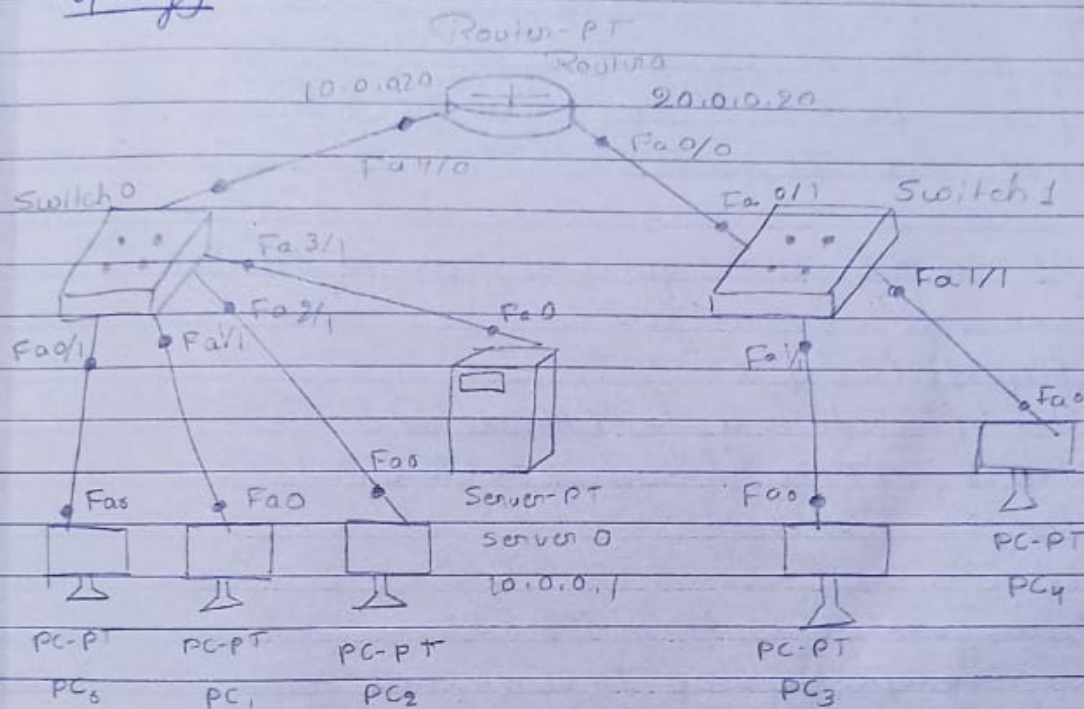 Router-PT
Router0
10.0.0.20
20.0.0.20
Fa 4/0
Fa 0/0
Switch 0
Fa 0/1
Switch 1
Fa 3/1
Fa 1/1
Fa 2/1
Fa0
Fa0/1
Fa1/1
Fa1/1
Fa0
Fa0
Fa0
Fa0
Fa0
Server-PT
Server 0
10.0.0.1
PC-PT
PC4
PC-PT
PC0
PC-PT
PC1
PC-PT
PC2
PC-PT
PC3